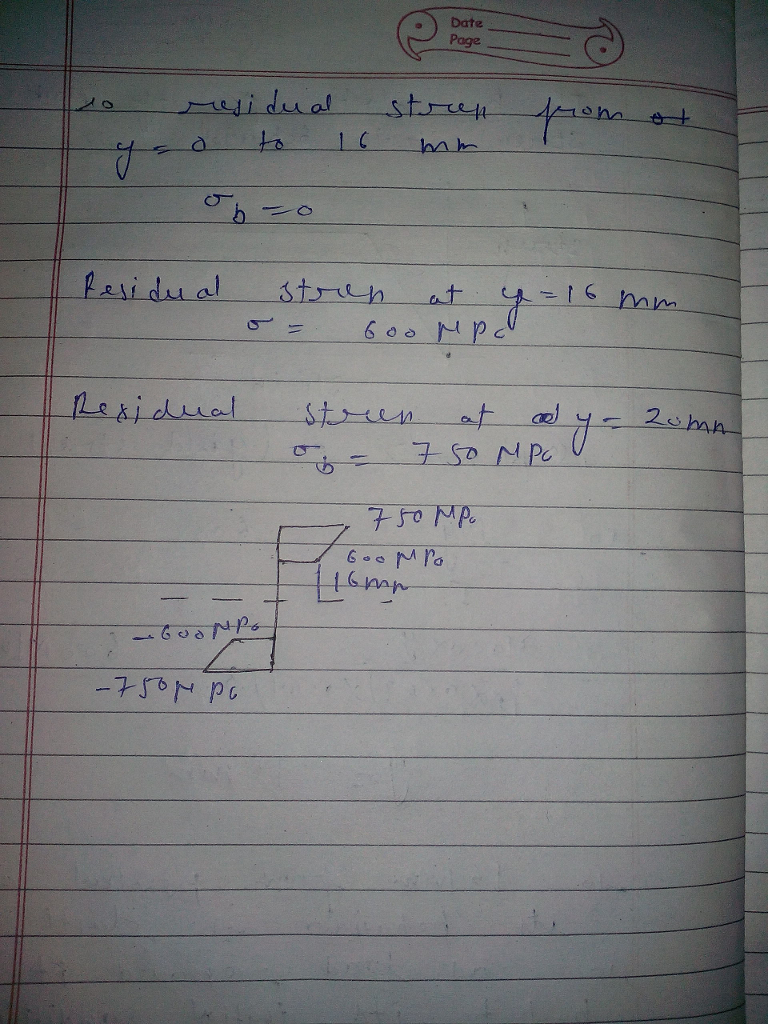 Date
Page
so residual stress from at
y = 0 to 16 mm
σb = 0
Residual stress at y = 16 mm
σ = 600 MPa
Residual stress at y = 20mm
σb = 750 MPa
750 MPa
600 MPa
16mm
-600 MPa
-750 MPa